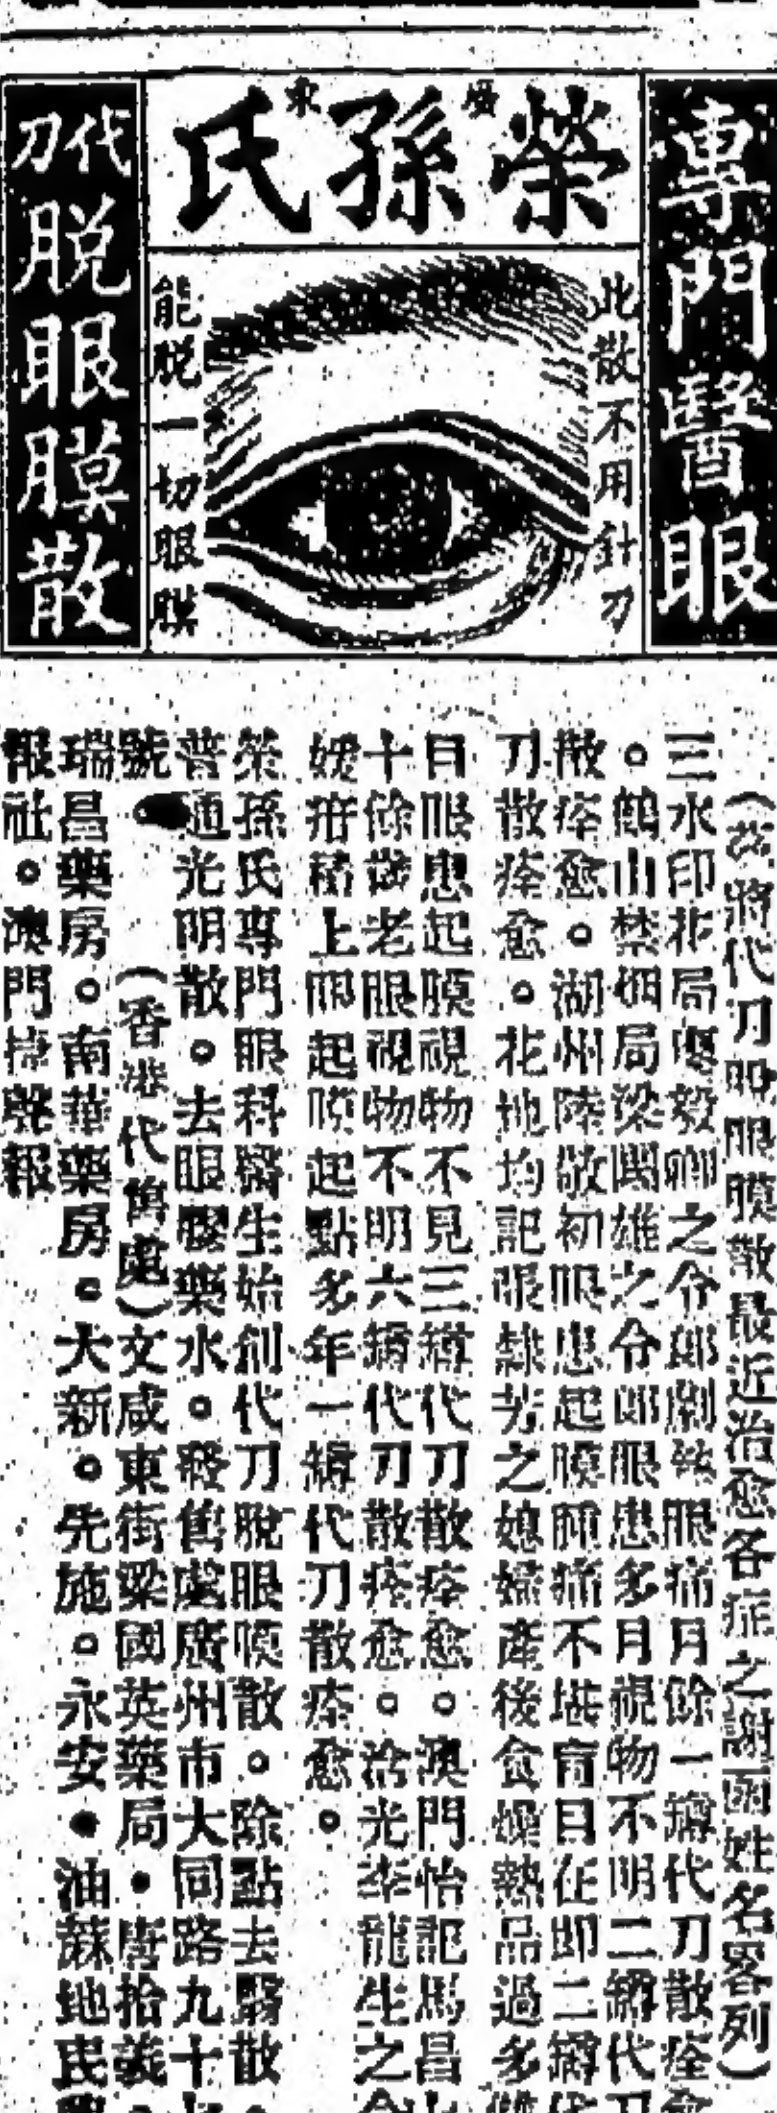 專門醫眼
榮孫氏
此散不用針刀
能脫一切眼膜
代刀脫眼膜散
(茲將代刀脫眼膜散最近治愈各症之謝函姓名畧列)
三水印花局 毅卿之令郎 眼痛月餘一罇代刀散痊愈
。鶴山禁烟局梁 雄之令郎眼患多月視物不明二罇代刀
散痊愈。湖州陸敬初眼患起膜腫痛不堪盲目在即二罇代
刀散痊愈。花地均記 芳之媳婦產後食燥熱品過多
目眼患起膜視物不見三罇代刀散痊愈。澳門怡記馬昌
十餘歲老眼視物不明六罇代刀散痊愈。 光李龍生之令
疳積上眼起膜起點多年一罇代刀散痊愈。
榮孫氏專門眼科醫生始創代刀脫眼膜散。除點去翳散。
普通光明散。去眼膠藥水。發售處廣州市大同路九十七
號
(香港代售處)文咸東街梁國英藥局•唐拾義
瑞昌藥房。南華藥房。大新。先施。永安•油蔴地民
報社。澳門 聲報